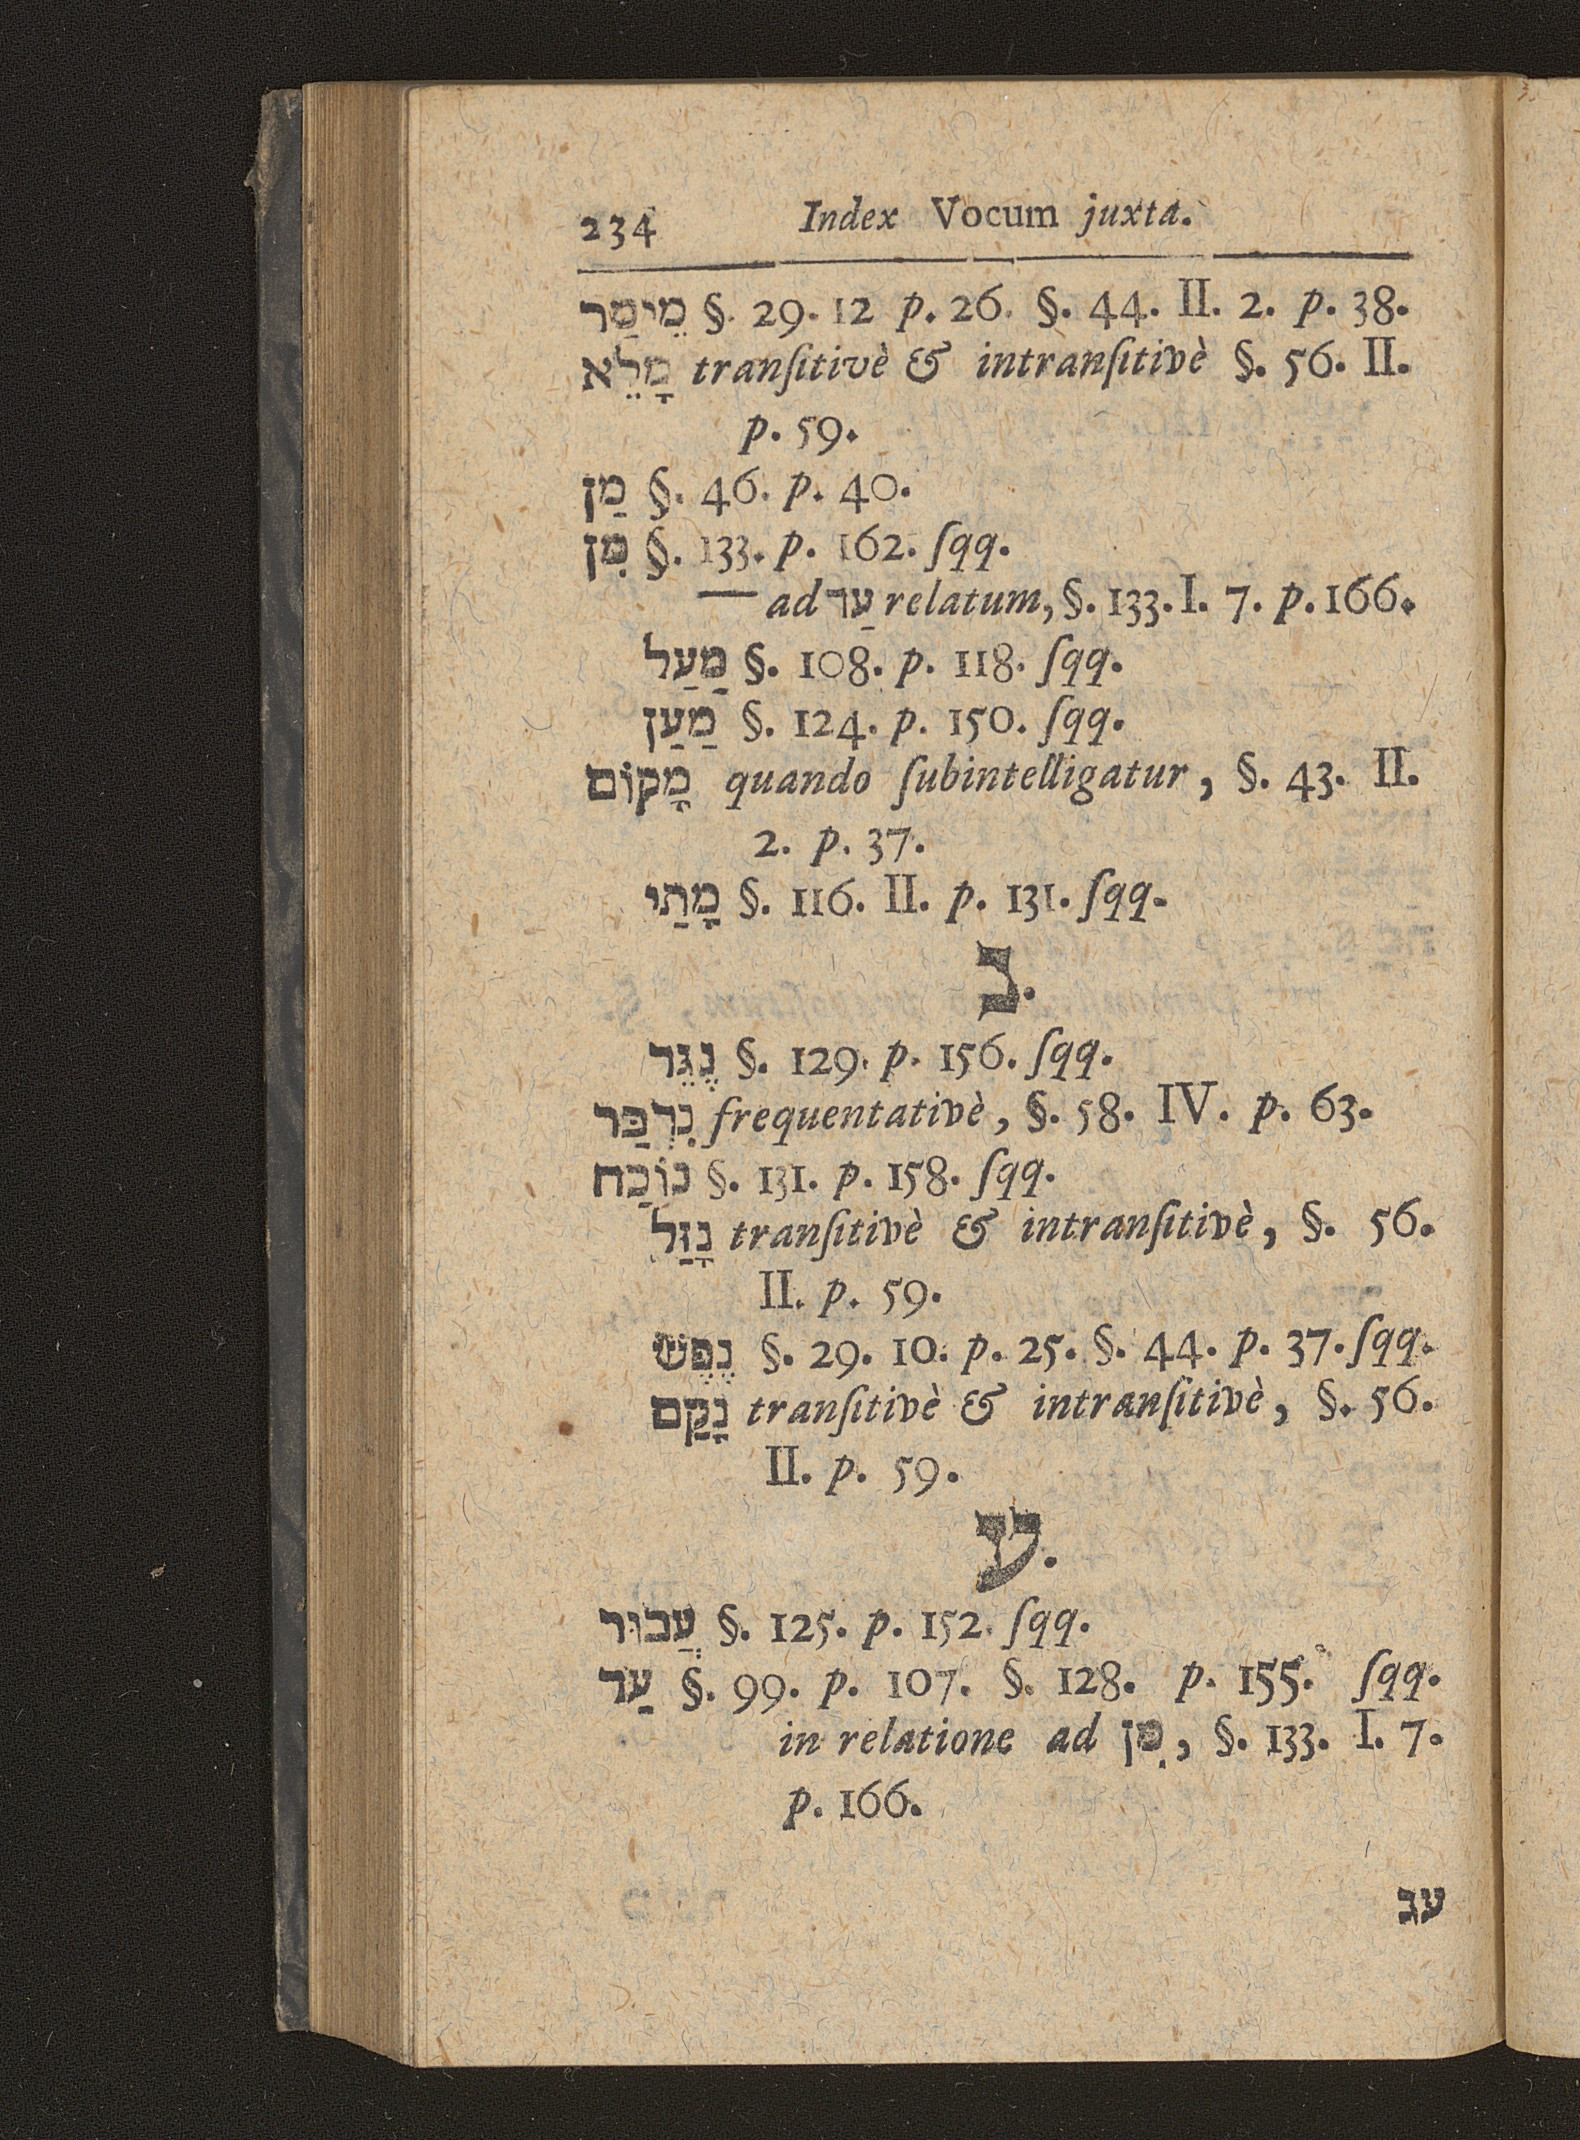 234 Index Vocum juxta.
מֵימַר §. 29. 12 p. 26. §. 44. II. 2. p. 38.
מָלֵא tranſitivè & intranſitivè §. 56. II.
p. 59.
מַן §. 46. p. 40.
מִן §. 133. p. 162. ſqq.
— ad עַד relatum, §. 133. I. 7. p. 166.
מֵעַל §. 108. p. 118. ſqq.
מַעַן §. 124. p. 150. ſqq.
מָקוֹם quando ſubintelligatur, §. 43. II.
2. p. 37.
מָתַי §. 116. II. p. 131. ſqq.
נ.
נֶגֶד §. 129. p. 156. ſqq.
נִדְבַּר frequentativè, §. 58. IV. p. 63.
נוֹכַח §. 131. p. 158. ſqq.
נָזַל tranſitivè & intranſitivè, §. 56.
II. p. 59.
נֶפֶשׁ §. 29. 10. p. 25. §. 44. p. 37. ſqq.
נָקַם tranſitivè & intranſitivè, §. 56.
II. p. 59.
ע.
עֲבוּר §. 125. p. 152. ſqq.
עַד §. 99. p. 107. §. 128. p. 155. ſqq.
in relatione ad מִן, §. 133. I. 7.
p. 166.
עב